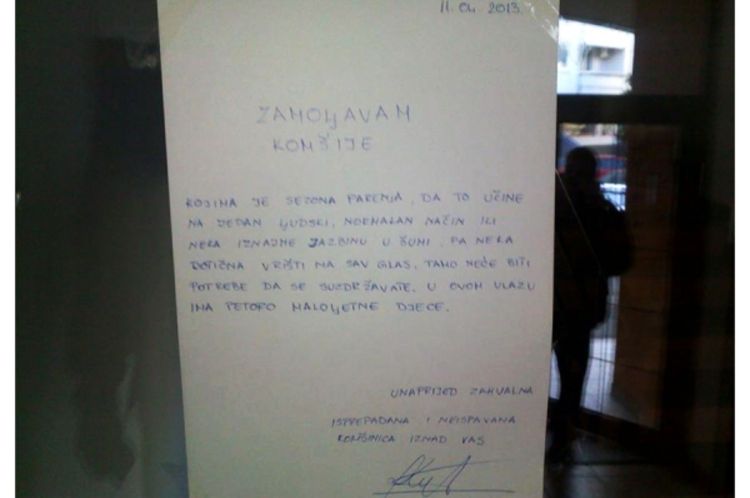 11.04.2013.
ZAMOLJAVAM
KOMŠIJE
KOJIMA JE SEZONA PARENJA, DA TO UČINE
NA JEDAN LJUDSKI, NORMALAN NAČIN ILI
NEKA IZNAJME JAZBINU U ŠUMI, PA NEKA
DOTIČNA VRIŠTI NA SAV GLAS, TAMO NEĆE BITI
POTREBE DA SE SUZDRŽAVATE. U OVOM ULAZU
IMA PETORO MALOLJETNE DJECE.
UNAPRIJED ZAHVALNA
ISPREPADANA I NEISPAVANA
KOMŠINICA IZNAD VAS